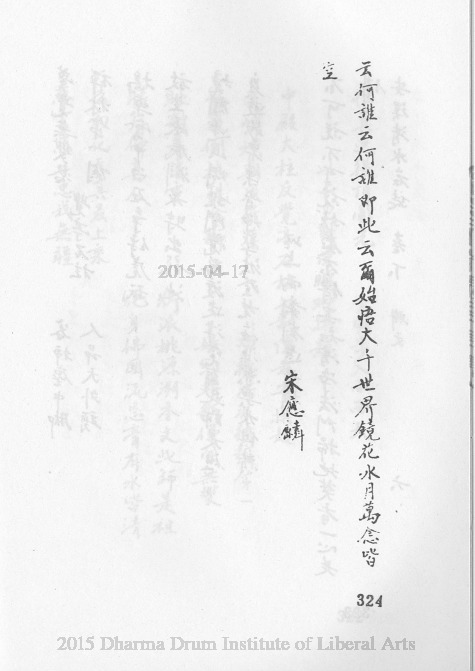 云何誰云何誰即此云爾始悟大千世界鏡花水月萬念皆
空
宋應麟
324
2015-04-17
2015 Dharma Drum Institute of Liberal Arts